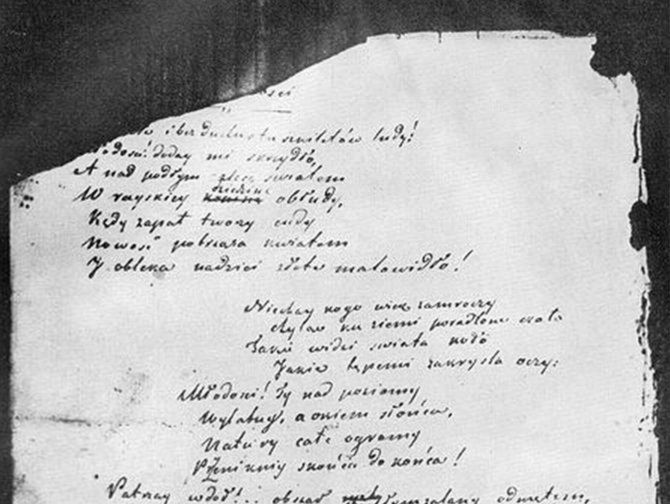 ości
i bez ducha to szkieletów ludy!
łodości! doday mi skrzydło,
A nad podłym zlecę światem
W rayskiey dziedzinę obłudy,
Kędy zapał tworzy cudy
Nowość potrząsa kwiatem
I obleka nadziei złote malowidło!
Niechay kogo wiek zamroczy
Chyląc ku ziemi poradlone czoło
Takie widzi świata koło
Jakie tępemi zakryśla oczy:
Młodości! Ty nad poziomy
Wylatuy, a okiem słońca,
Natury całe ogromy
Przenikniy z końca do końca!
Patrzay w dół!.. obszar zalany odmętem,